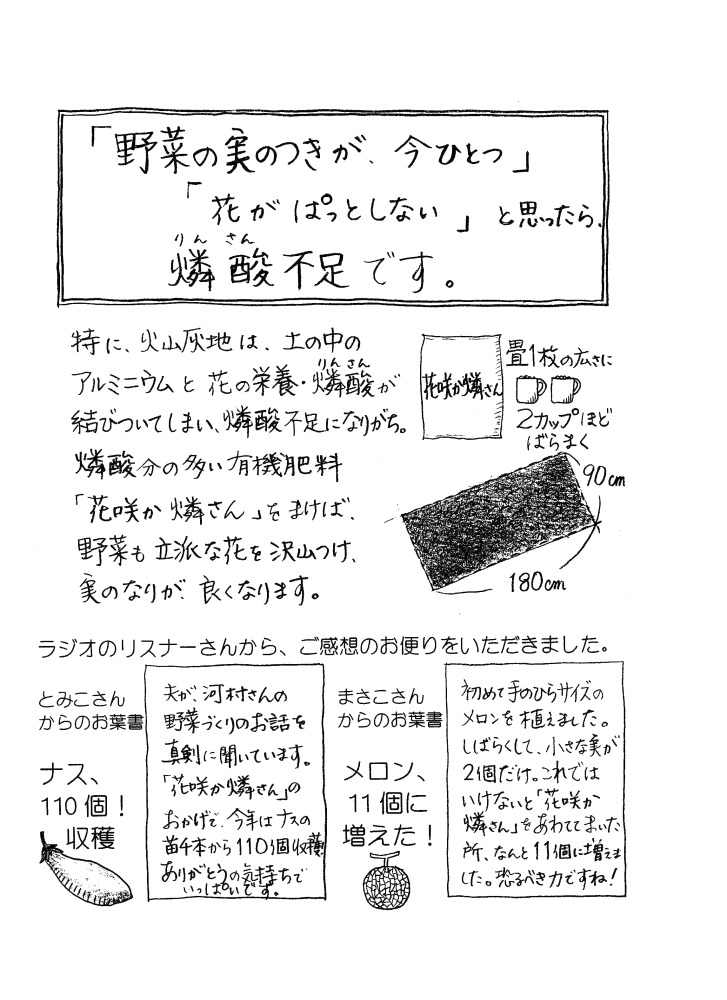 「野菜の実のつきが、今ひとつ」
「花がぱっとしない」と思ったら、
りん さん
燐酸不足です。
特に、火山灰地は、土の中の
りんさん
アルミニウムと花の栄養・燐酸が
結びついてしまい、燐酸不足になりがち。
燐酸分の多い有機肥料
「花咲か燐さん」をまけば、
野菜も立派な花を沢山つけ、
実のなりが、良くなります。
花咲か燐さん
畳1枚の広さに
2カップほど
ばらまく
90cm
180cm
ラジオのリスナーさんから、ご感想のお便りをいただきました。
とみこさん
からのお葉書
ナス、
110個！
収穫
夫が河村さんの
野菜づくりのお話を
真剣に聞いています。
「花咲か燐さん」の
おかげで、今年はナスの
苗千本から110個収穫
ありがとうの気持ちで
いっぱいです。
まさこさん
からのお葉書
メロン、
11個に
増えた！
初めて手のひらサイズの
メロンを植えました。
しばらくして、小さな実が
2個だけ。これでは
いけないと「花咲か
燐さん」をあわててまいた
所、なんと11個に増えま
した。恐るべき力ですね！